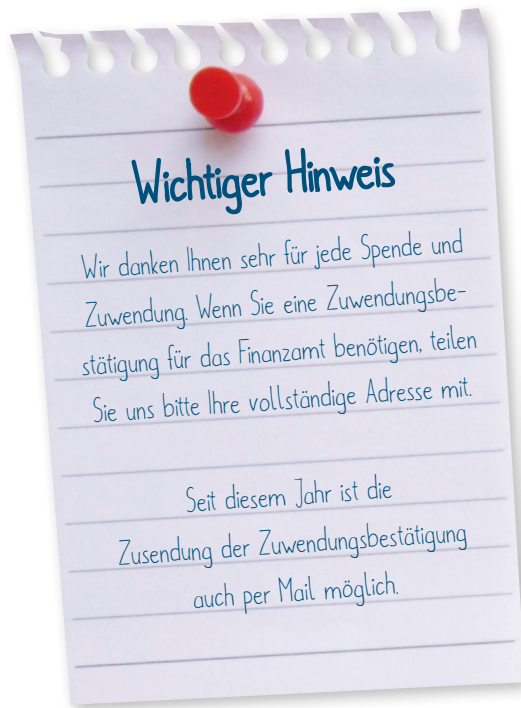 Wichtiger Hinweis
Wir danken Ihnen sehr für jede Spende und
Zuwendung. Wenn Sie eine Zuwendungsbe-
stätigung für das Finanzamt benötigen, teilen
Sie uns bitte Ihre vollständige Adresse mit.
Seit diesem Jahr ist die
Zusendung der Zuwendungsbestätigung
auch per Mail möglich.